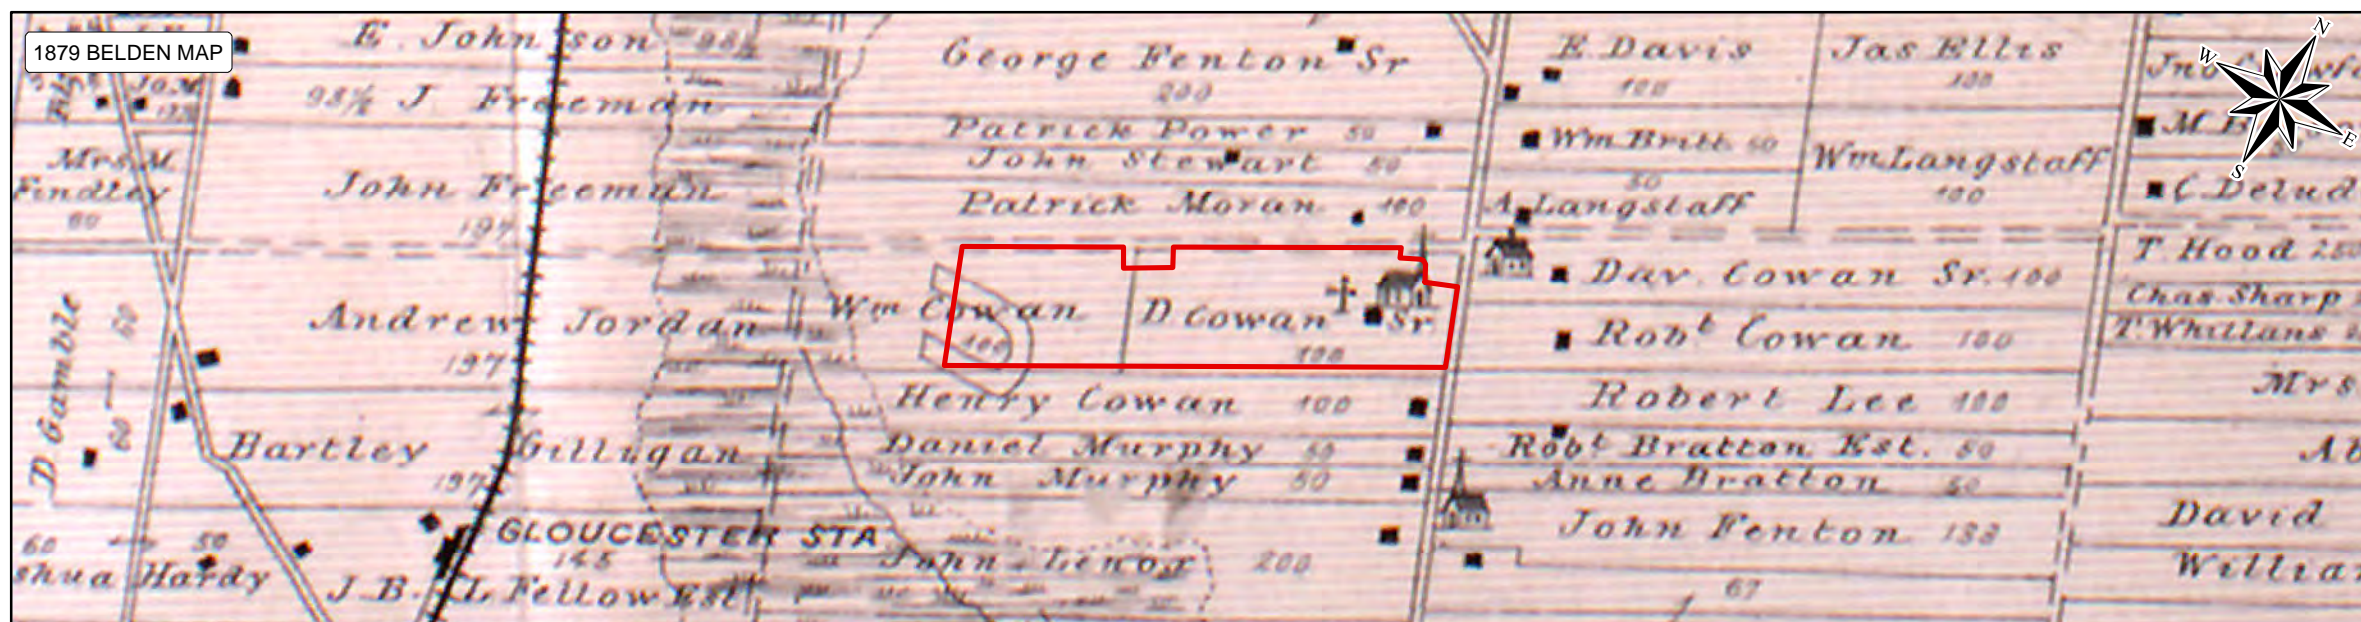 1879 BELDEN MAP
E. Johnson 98½
98½ J. Freeman
Jo. M.
Mrs. M.
Findley
60
John Freeman
197
D. Gamble
60
50
Andrew Jordan
197
Bartley Gilligan
197
GLOUCESTER STA
145
60
50
shua Hardy
J. B.
L. Fellow Est
George Fenton Sr
200
Patrick Power 50
John Stewart 50
Patrick Moran 100
Wm Cowan
100
D. Cowan Sr
100
Henry Cowan 100
Daniel Murphy 50
John Murphy 50
John Lenox 200
E. Davis
100
Jas Ellis
100
Wm Britt 50
50
A. Langstaff
Wm Langstaff
100
Dav. Cowan Sr. 100
Robt Cowan 100
Robert Lee 100
Robt Bratton Est. 50
Anne Bratton 50
John Fenton 133
67
Jno
C. Delud
T. Hood 250
Chas. Sharp
T. Whillans
Mrs
Ab
David
Willia
N
W
E
S